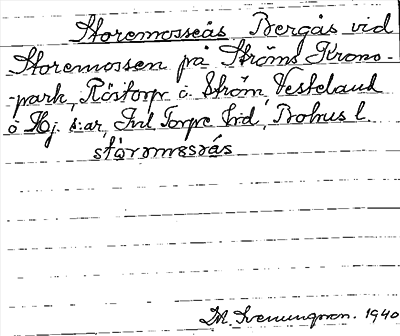 Storemosseås Bergås vid
Storemossen på Ströms Krono-
-park, Röstorp i Ström, Vesteland
o Hj. s:ar, Inl Torpe hrd, Bohus l.
stòrmossås
M. Svenungson. 1940